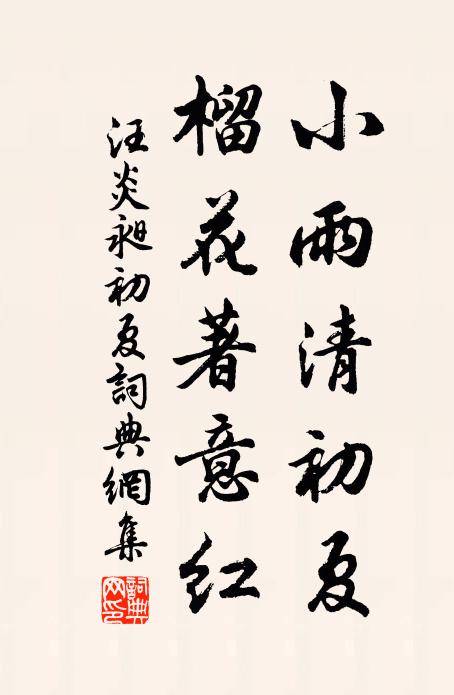 小雨清初夏
榴花著意紅
汪炎昶初夏詞典網集
詞典網印